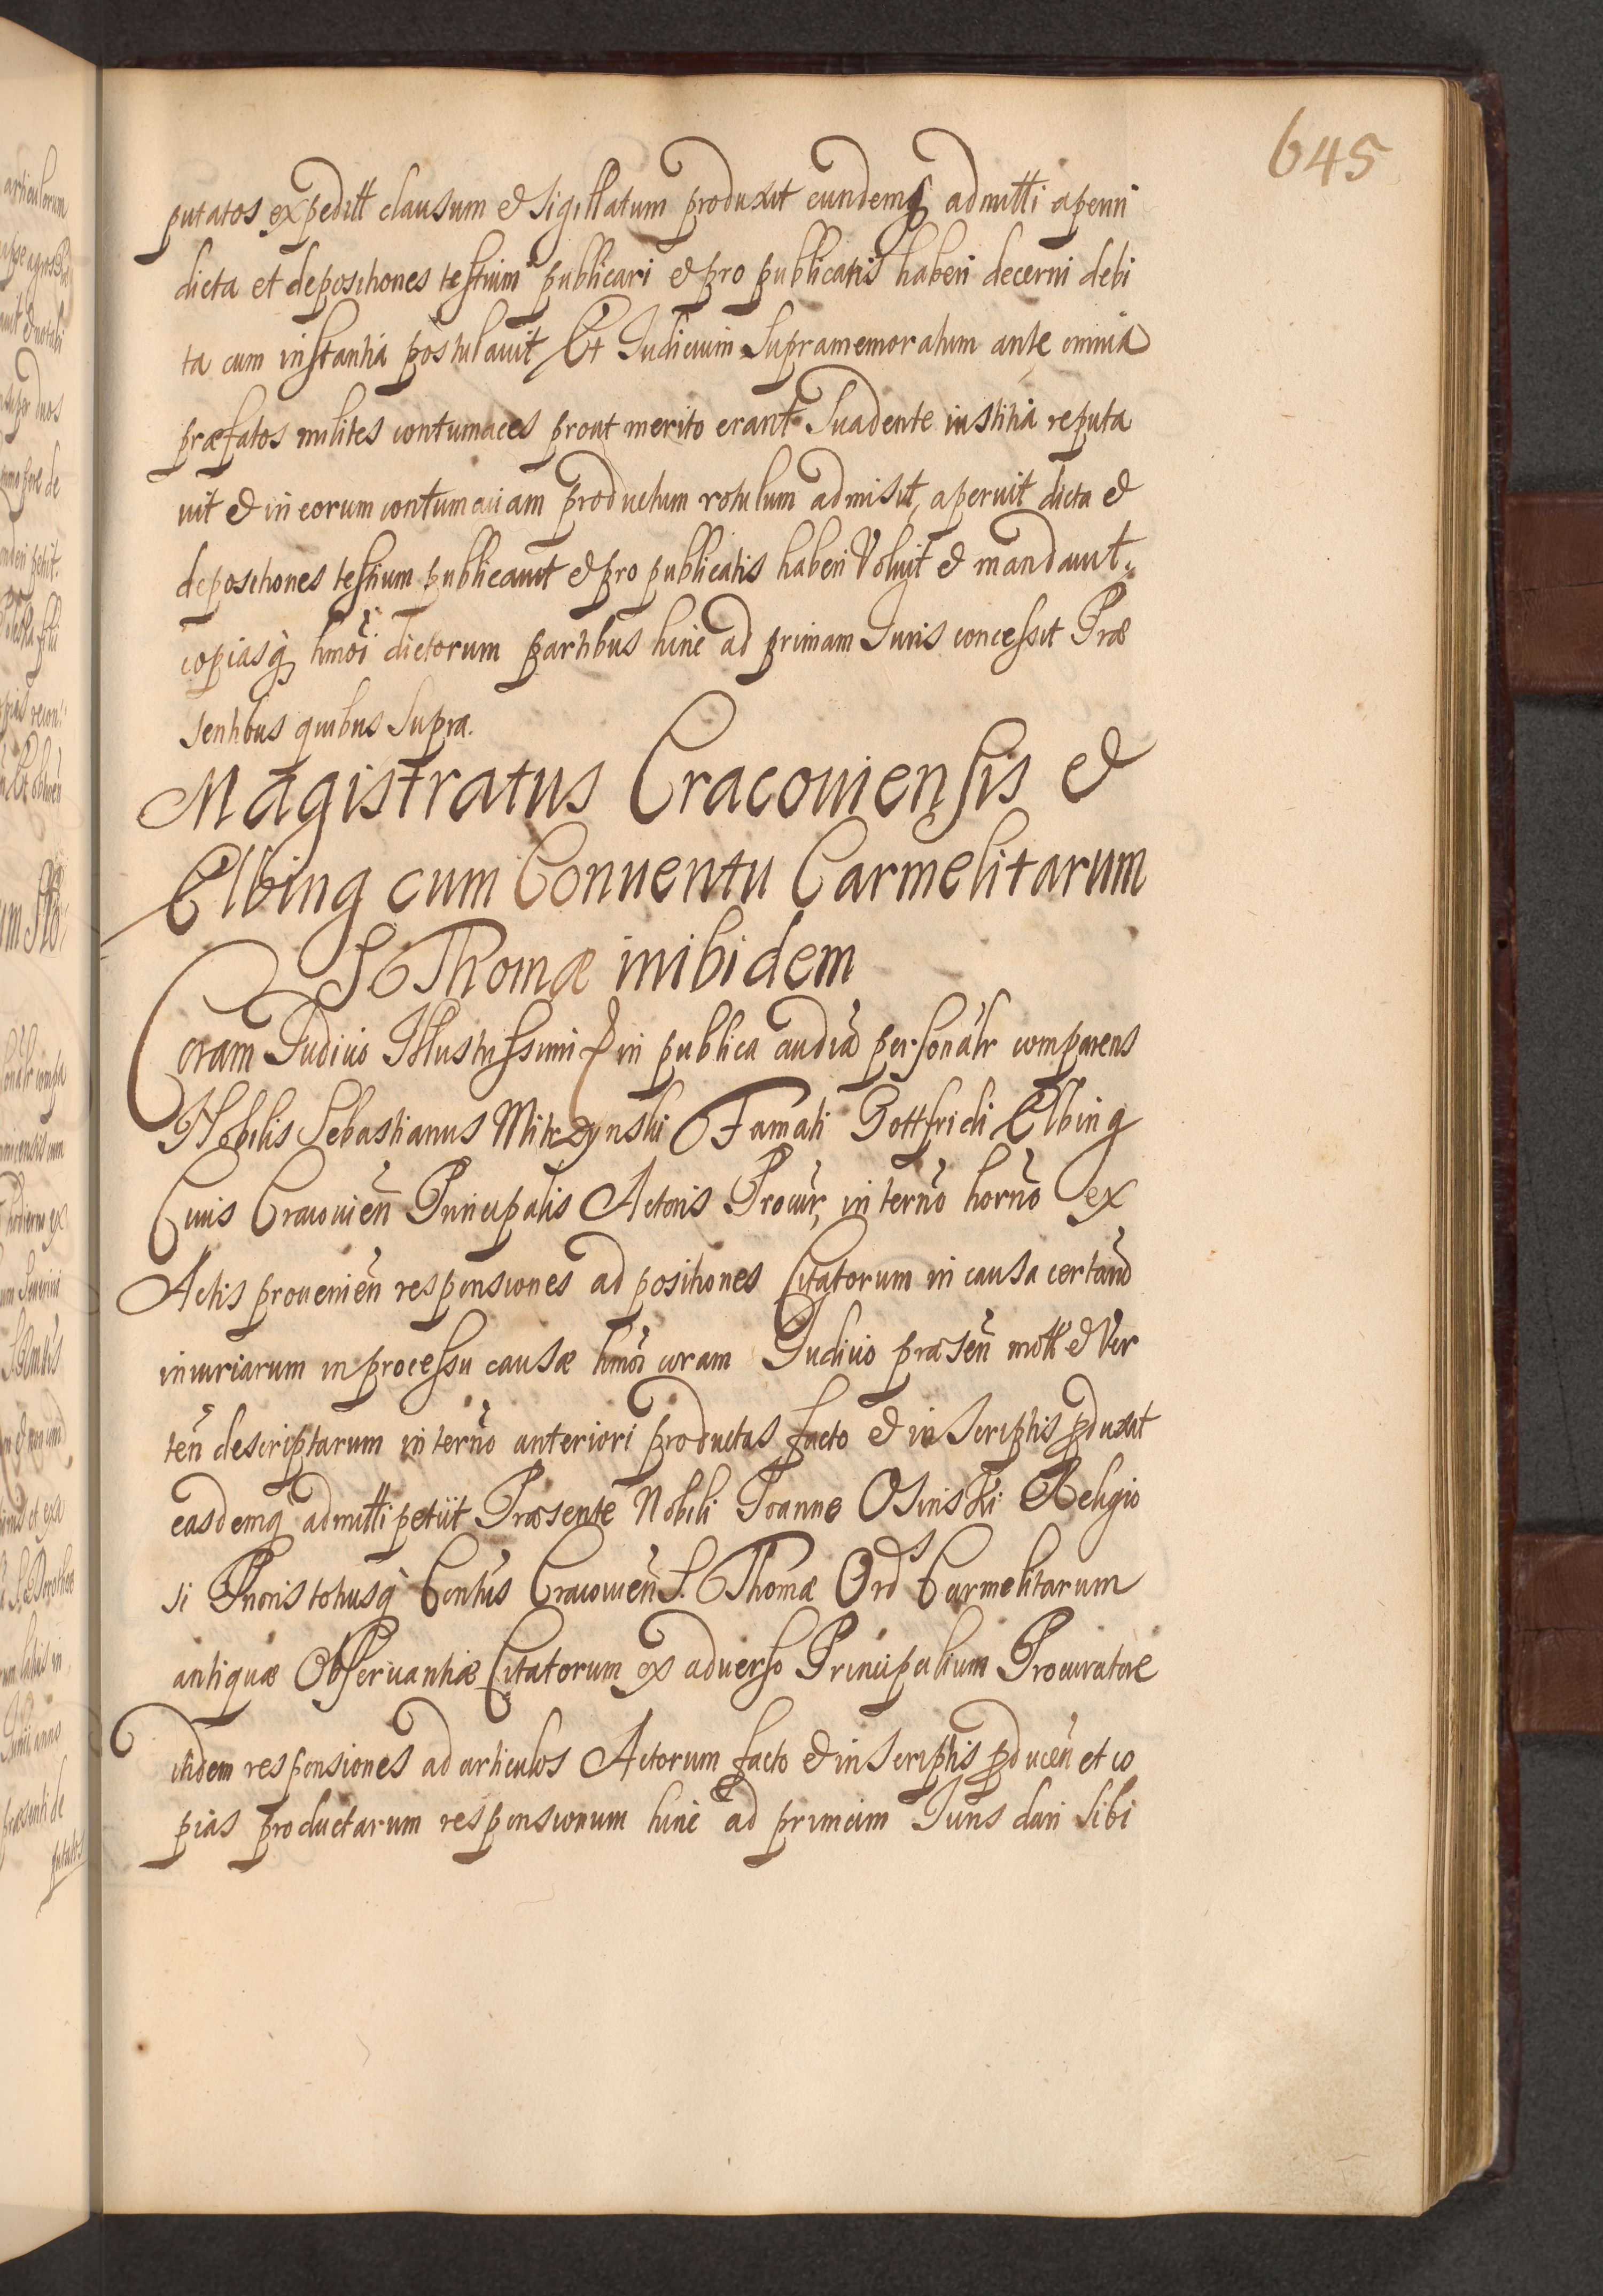 645
putatos expeditt clausum et sigillatum produxit eundemq admitti aperiri
dicta et depositiones testium publicari et pro publicatis haberi decerni debi
ta cum instantia postulavit Et Iudicium supramemoratum ante omnia
præfatos milites contumaces prout merito erant suadente iustitia reputa
uit et in eorum contumaciam productum rotulum admisit, aperuit dicta et
depositiones testium publicauit et pro publicatis haberi voluit et mandauit.
copiasq hmōi dictorum partibus hinc ad primam Iuris concessit Præ
sentibus quibus supra.
Magistratus Cracouiensis et
Elbing cum Conuentu Carmelitarum
S Thomæ inibidem
Coram Iudicio Illustrissimi et in publica audiā personalr comparens
Nobilis Sebastianus Mitczynski Famati Gottfridi Elbing
Ciuis Cracouien̄ Principalis Actoris Procur, in tern̄o horn̄o ex
Actis prouenien̄ responsiones ad positiones Citatorum in causa certan̄d
iniuriarum in processu causæ hmōi coram Iudicio præsen̄ mott et Ver
ten̄ descriptarum in tern̄o anteriori productas facto et in scriptis pduxit
easdemq admitti petiit Præsente Nobili Ioanne Osinski Religio
si Prioris totiusq Cont̄us Cracouien̄ S. Thomæ Ord̄s Carmelitarum
antiquæ Obseruantiæ Citatorum ex aduerso Principalium Procuratore
itidem responsiones ad articulos Actorum facto et in scriptis pducen̄ et co
pias productarum responsionum hinc ad primam Iuris dari sibi